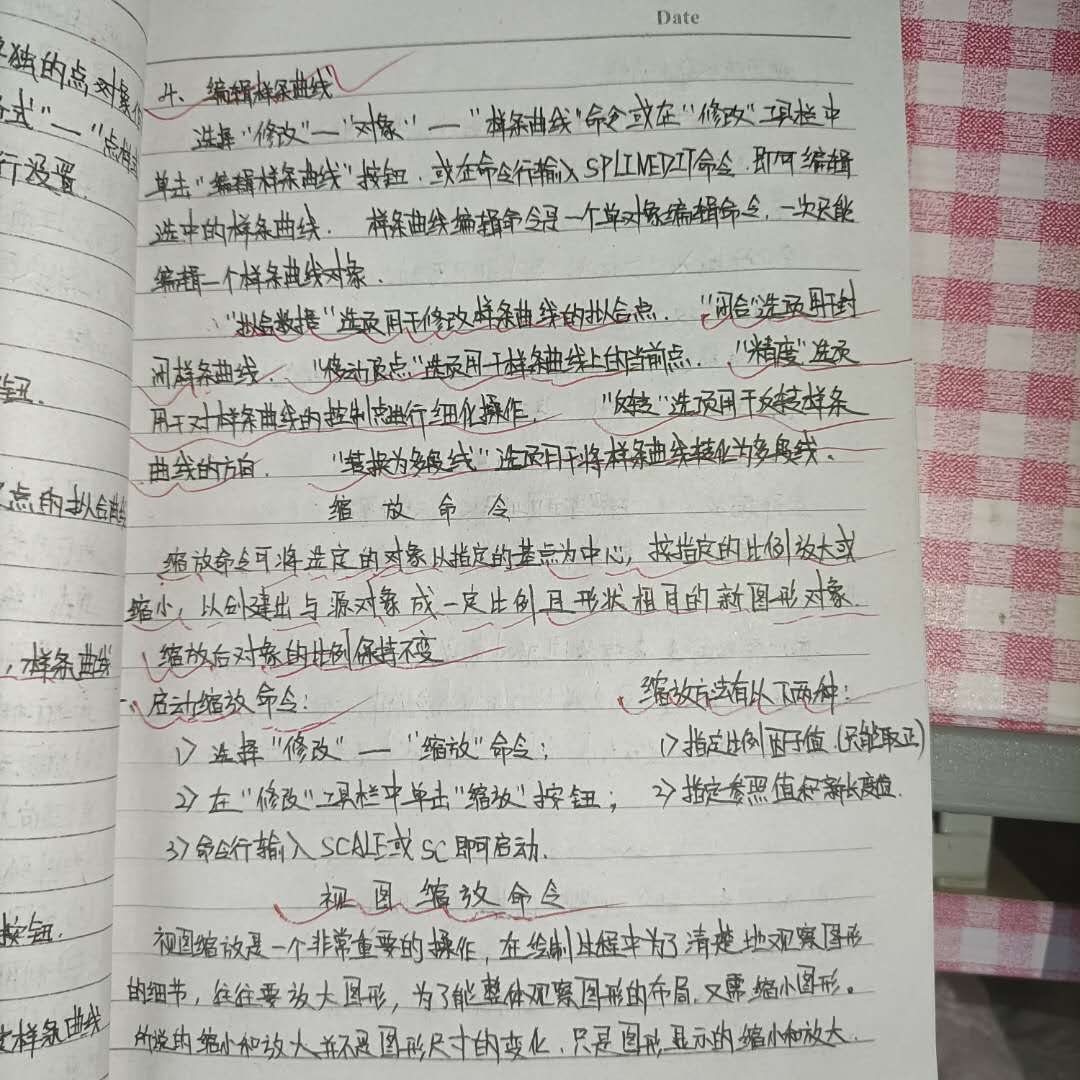 Date
独的点对象
式"—"点样
行设置
钮.
点的拟合曲线
,样条曲线
按钮.
样条曲线
4、编辑样条曲线
选择"修改"—"对象"—"样条曲线"命令或在"修改"工具栏中
单击"编辑样条曲线"按钮.或在命令行输入SPLINEDIT命令.即可编辑
选中的样条曲线. 样条曲线编辑命令是一个单对象编辑命令.一次只能
编辑一个样条曲线对象.
"拟合数据"选项用于修改样条曲线的拟合点. "闭合"选项用于封
闭样条曲线. "移动顶点"选项用于样条曲线上的当前点. "精度"选项
用于对样条曲线的控制点进行细化操作. "反转"选项用于反转样条
曲线的方向. "替换为多段线"选项用于将样条曲线转化为多段线.
缩放命令
缩放命令可将选定的对象以指定的基点为中心,按指定的比例放大或
缩小,以创建出与源对象成一定比例且形状相同的新图形对象.
缩放后对象的比例保持不变
一、启动缩放命令: 缩放方法有以下两种:
1> 选择"修改"—"缩放"命令; 1>指定比例因子值.(只能取正)
2> 在"修改"工具栏中单击"缩放"按钮; 2>指定参照值和新长度值.
3>命令行输入SCALE或SC即可启动.
视图缩放命令
视图缩放是一个非常重要的操作,在绘制过程中为了清楚地观察图形
的细节,往往要放大图形,为了能整体观察图形的布局.又需缩小图形。
所说的缩小和放大并不是图形尺寸的变化.只是图形显示的缩小和放大.